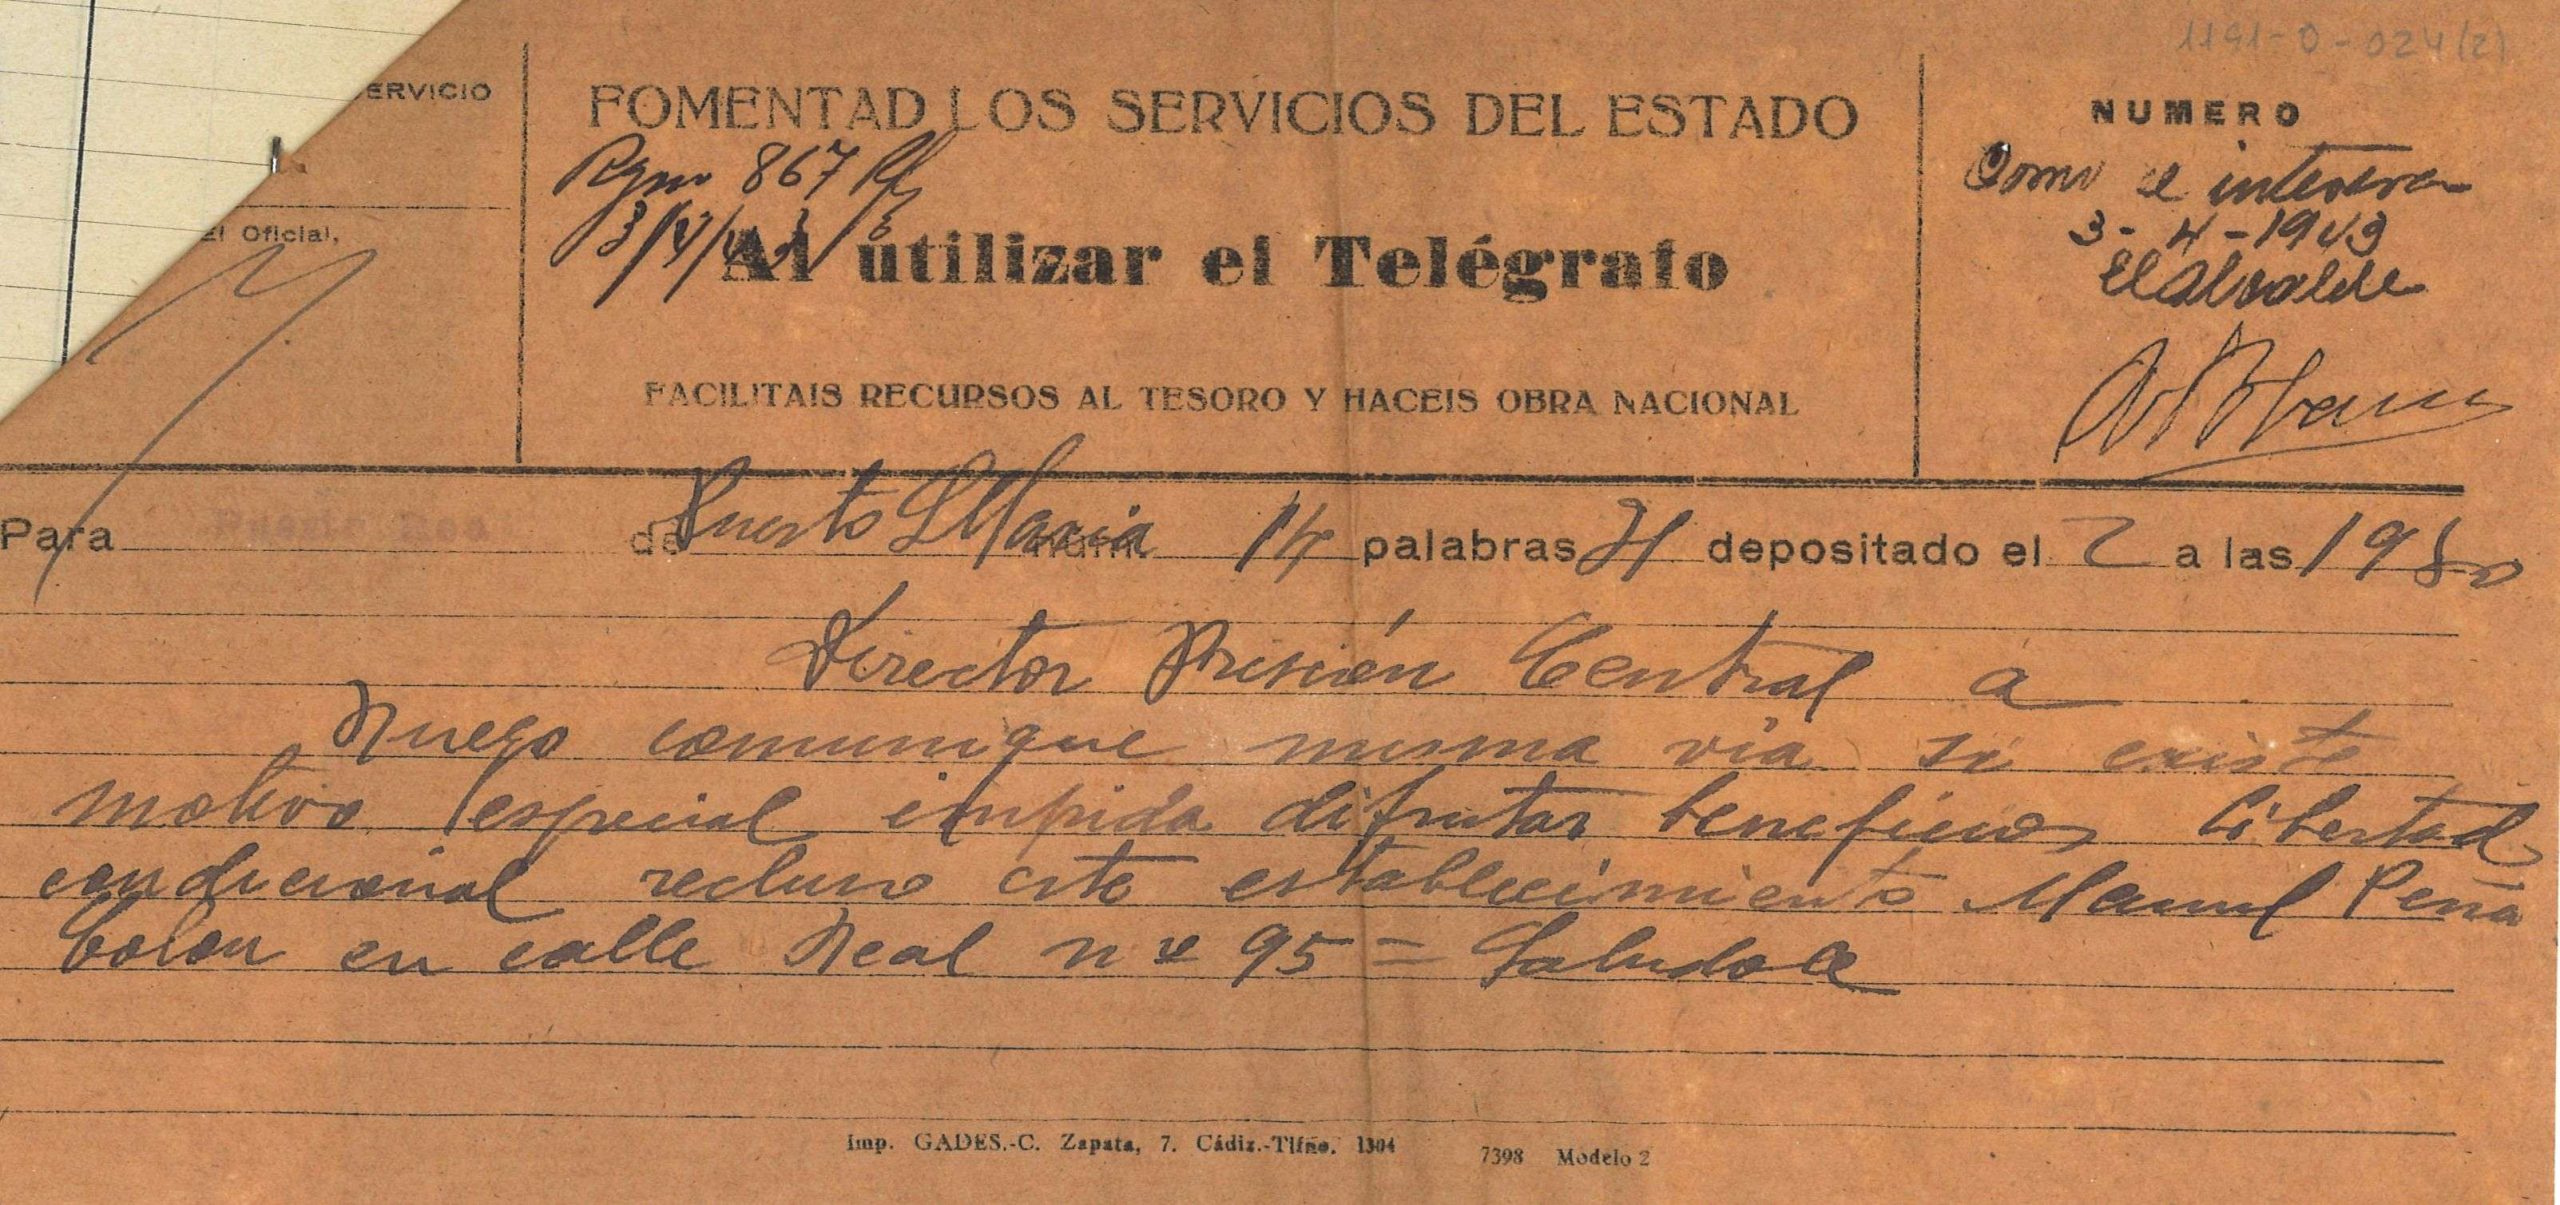 1191-0-024(2)
ERVICIO
El Oficial,
FOMENTAD LOS SERVICIOS DEL ESTADO
867
3/4/43
Al utilizar el Telégrafo
FACILITAIS RECURSOS AL TESORO Y HACEIS OBRA NACIONAL
NUMERO
Como se interesa
3-4-1943
El Alcalde
Para Puerto Real de Puerto S Maria núm. 14 palabras 31 depositado el 2 a las
Director Prisión Central a
Ruego comunique misma via si existe
motivo especial impida difrutar beneficios libertad
condicional recluso este establecimiento Manuel Peña
Colon en calle Real nº 95 = Saludole
Imp. GADES.-C. Zapata, 7. Cádiz.-Tlfno. 1304
7398 Modelo 2